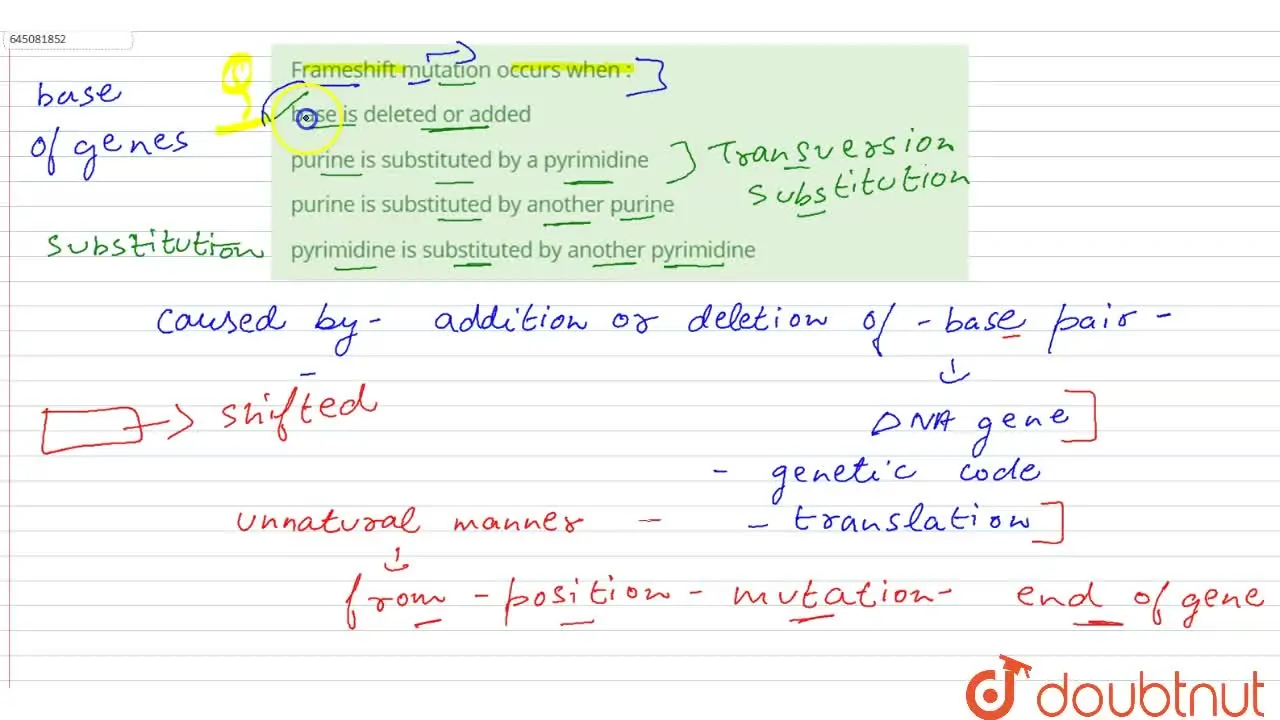 645081852
Frameshift mutation occurs when :
base is deleted or added
purine is substituted by a pyrimidine
purine is substituted by another purine
pyrimidine is substituted by another pyrimidine
base
of genes
substitution
Transversion
substitution
caused by- addition or deletion of - base pair -
DNA gene
shifted
- genetic code
unnatural manner - - translation
from - position - mutation- end of gene
doubtnut